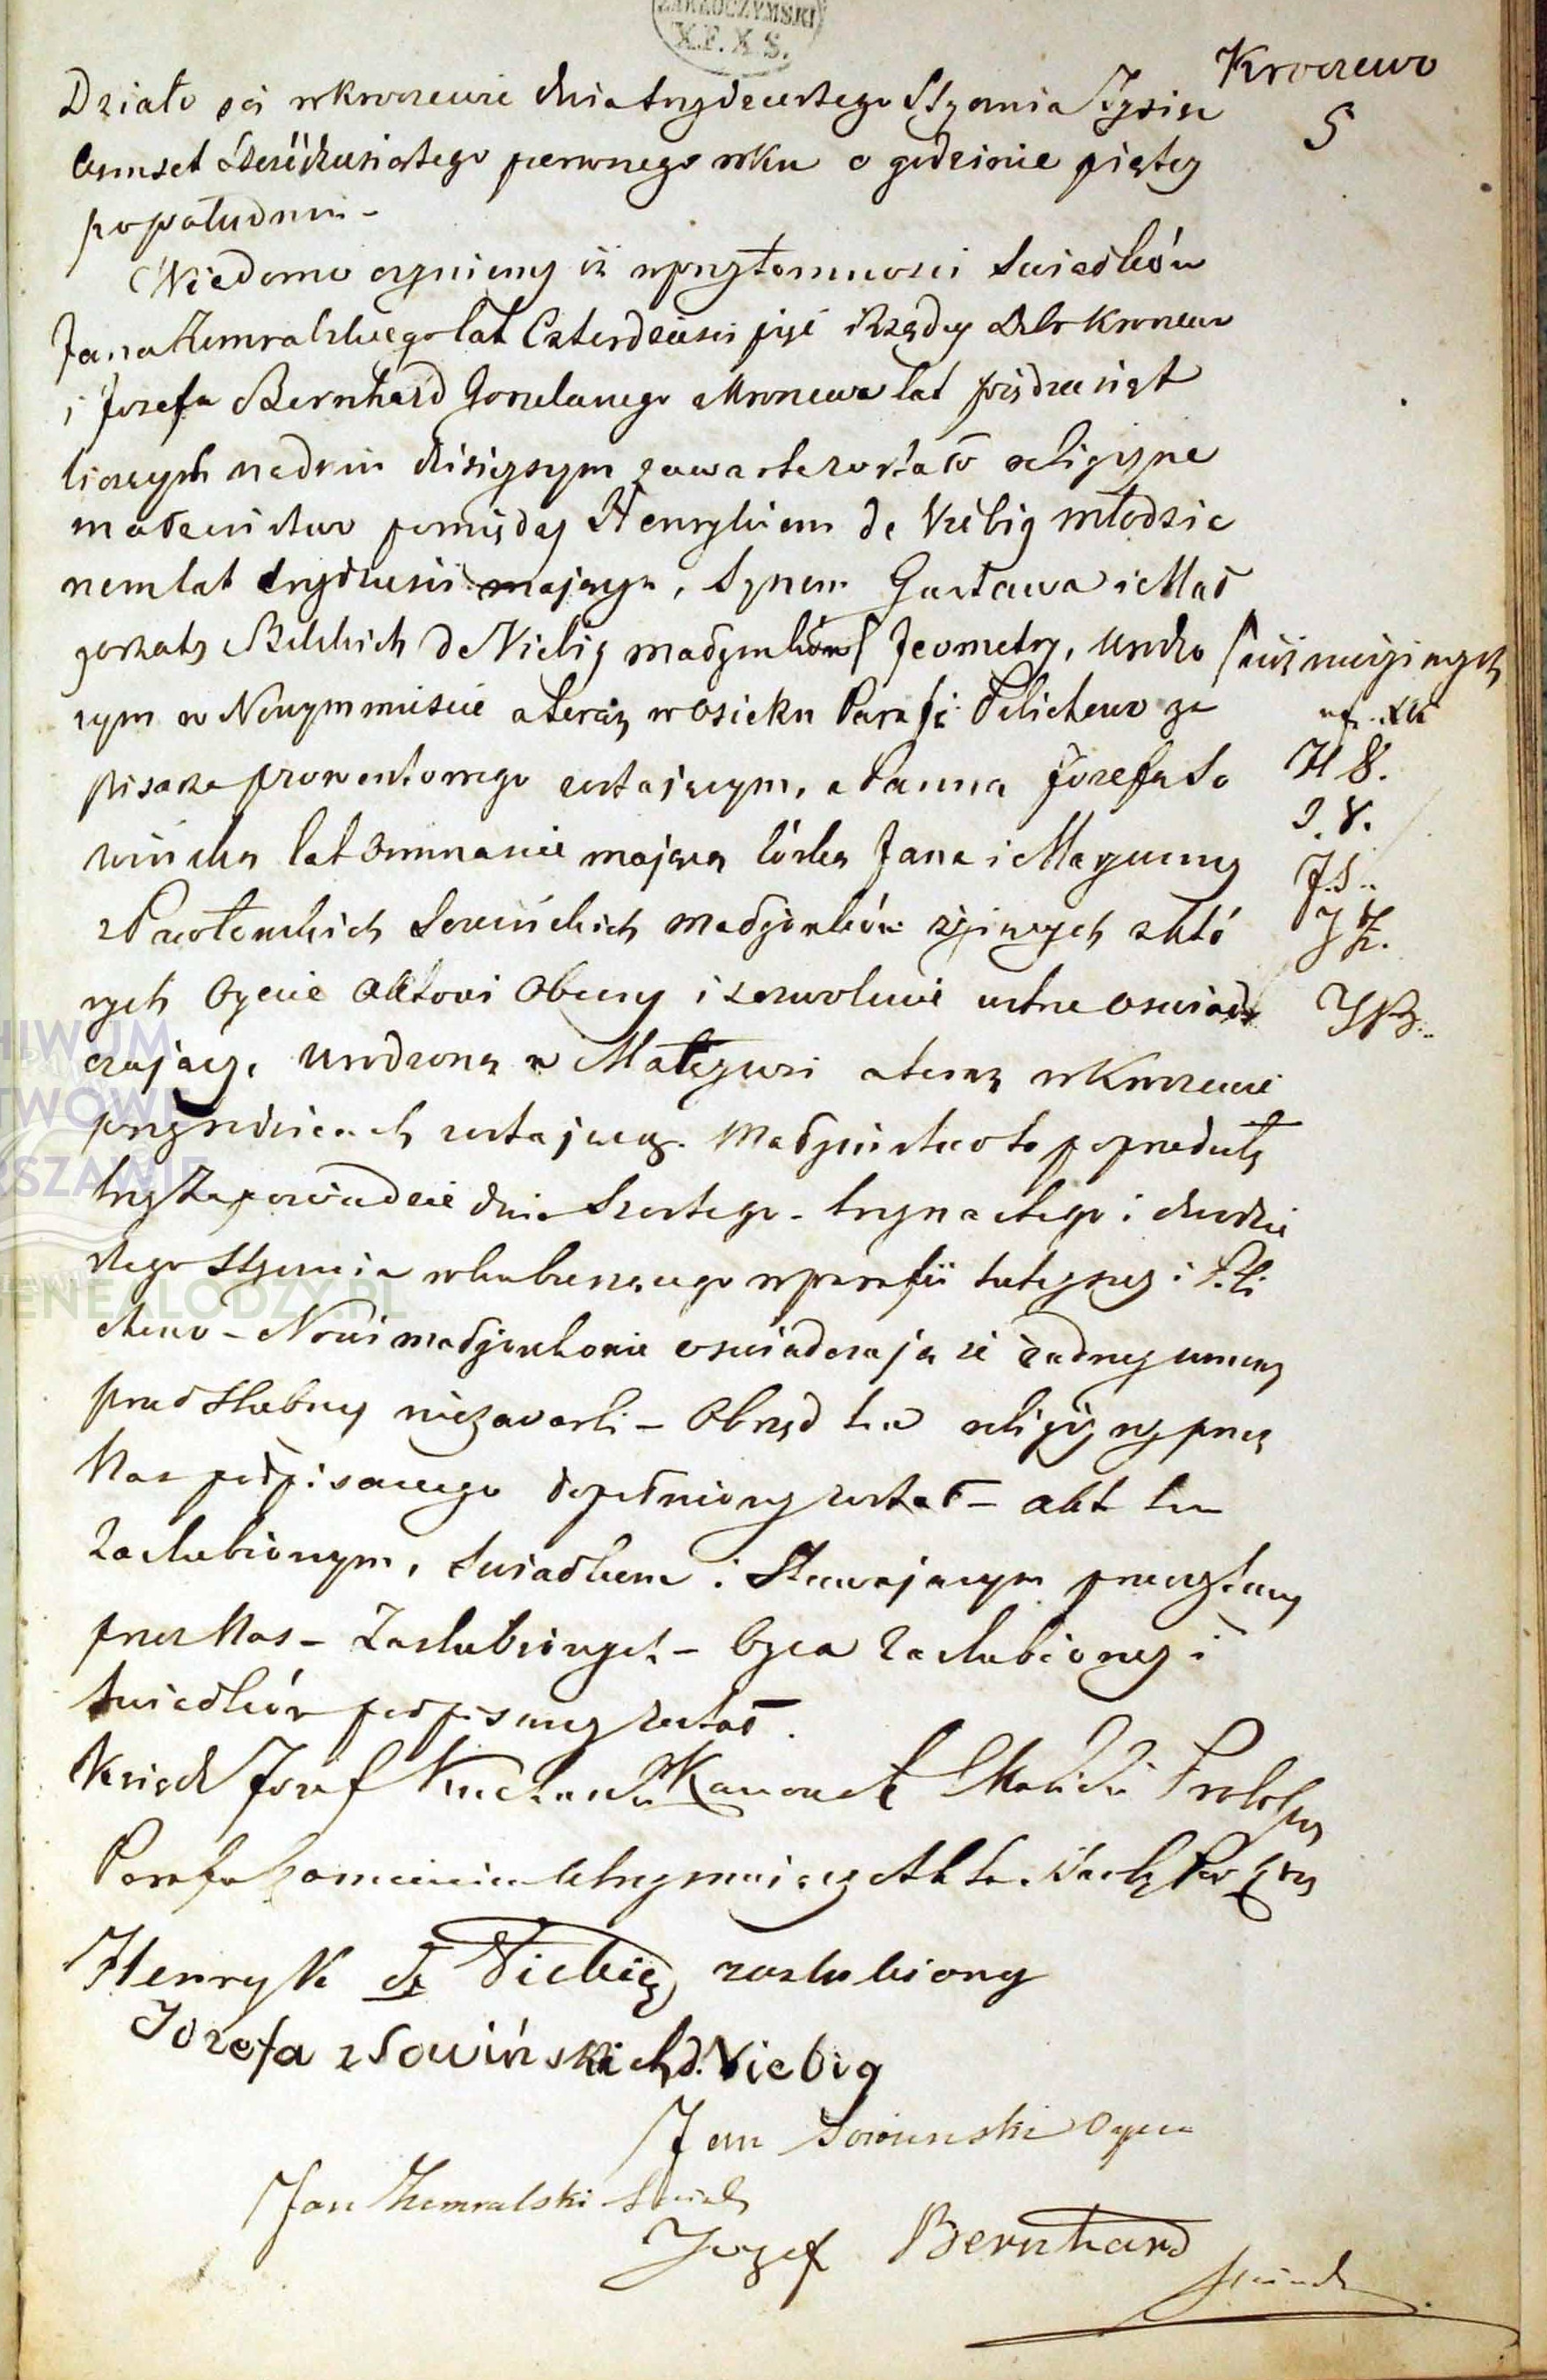 ZAKROCZYMSKI
X.F.X S.
Krooczewo
5
Działo się w Kroczewie dnia trzydziestego Stycznia Tysiąc
ośmset sześćdziesiątego pierwszego roku o godzinie piątej
popołudniu -
Wiadomo czyniemy iż w przytomności Świadków
Jana Zumralskiego lat Czterdzieści pięć Rządcy Dóbr Kroczewa
i Jozefa Bernhard Gorzelanego z Kroczewa lat pięćdziesiąt
liczących na dniu dzisiejszym zawarte zostało religijne
małżeństwo pomiędzy Henrykiem de Viebig młodzie
nem lat trzydzieści mającym, Synem Gustawa i Mał
gorzaty de Viebig małżonków Jeometry, urodzo
już nieżyjących
nym w Nowymmieście a teraz w Osieku Parafii Pilichowo za
pisarza prowentowego zostającym, a Panną Jozefą So
wińską lat Ośmnaście mającą córką Jana i Maryanny
H V.
J. V.
J. S..
J Z.
J B..
z Sowińskich małżonków żyjących z któ
rych Ojciec Aktowi Obecny i zezwolenie ustne oświad
czający, urodzoną w a teraz w Kroczewie
przy rodzicach zostającą. Małżeństwo to poprzedziły
trzy Zapowiedzie dnia Szóstego - trzynastego i dwudzie
stego Stycznia roku bieżącego w parafii tutejszej i Pili
chowo - Nowi małżonkowie oświadczają iż żadnej umowy
przedślubnej niezawarli - Obrząd ten religijny przez
Nas podpisanego dopełniony został - akt ten
Zaślubionym, Świadkom i Stawającym przeczytany
przez Nas - Zaślubionych - Ojca Zaślubionej i
Świadków podpisany został.
Ksiądz Jozef Kanonik
Parafii Utrzymujący Akta
Henryk de Viebig zaslubiony
Jozefa z Sowińskich d. Viebig
Jan Sowinski Ojciec
Jan Zumralski Swiadk
Jozef Bernhard
Swiadk